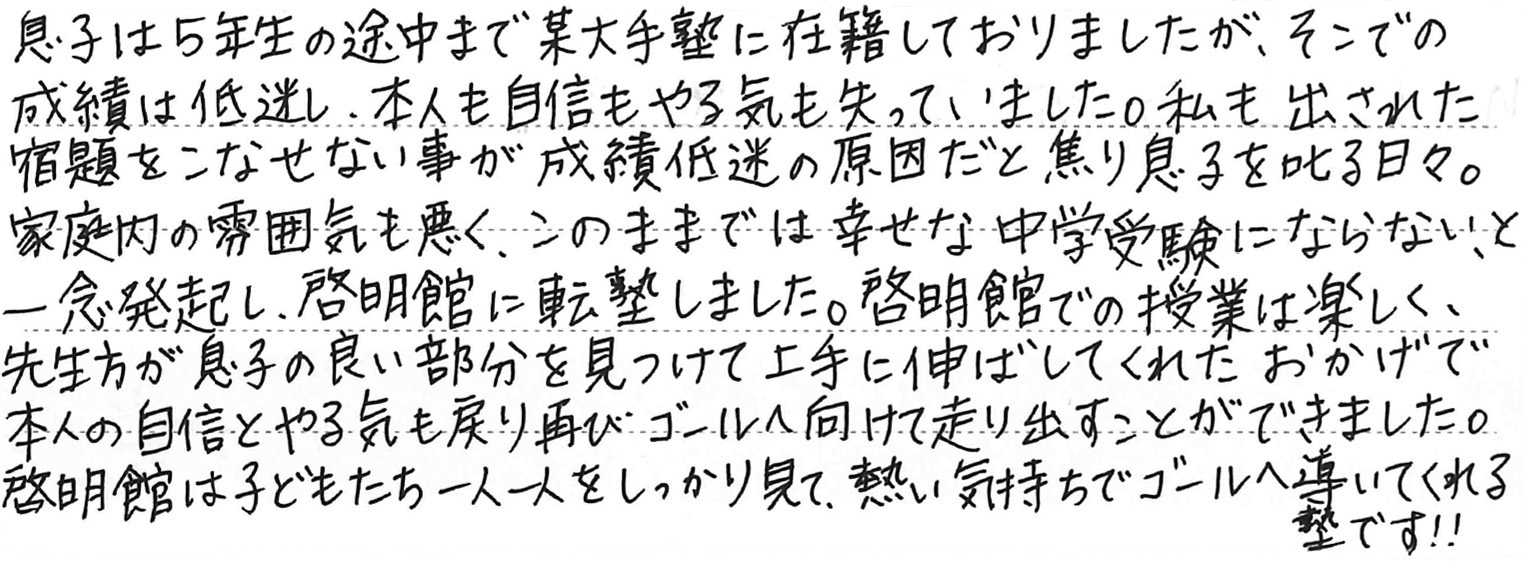 息子は5年生の途中まで某大手塾に在籍しておりましたが、そこでの
成績は低迷し、本人も自信もやる気も失っていました。私も出された
宿題をこなせない事が成績低迷の原因だと焦り息子を叱る日々。
家庭内の雰囲気も悪く、このままでは幸せな中学受験にならない、と
一念発起し、啓明館に転塾しました。啓明館での授業は楽しく、
先生方が息子の良い部分を見つけて上手に伸ばしてくれたおかげで
本人の自信とやる気も戻り再びゴールへ向けて走り出すことができました。
啓明館は子どもたち一人一人をしっかり見て、熱い気持ちでゴールへ導いてくれる
塾です!!